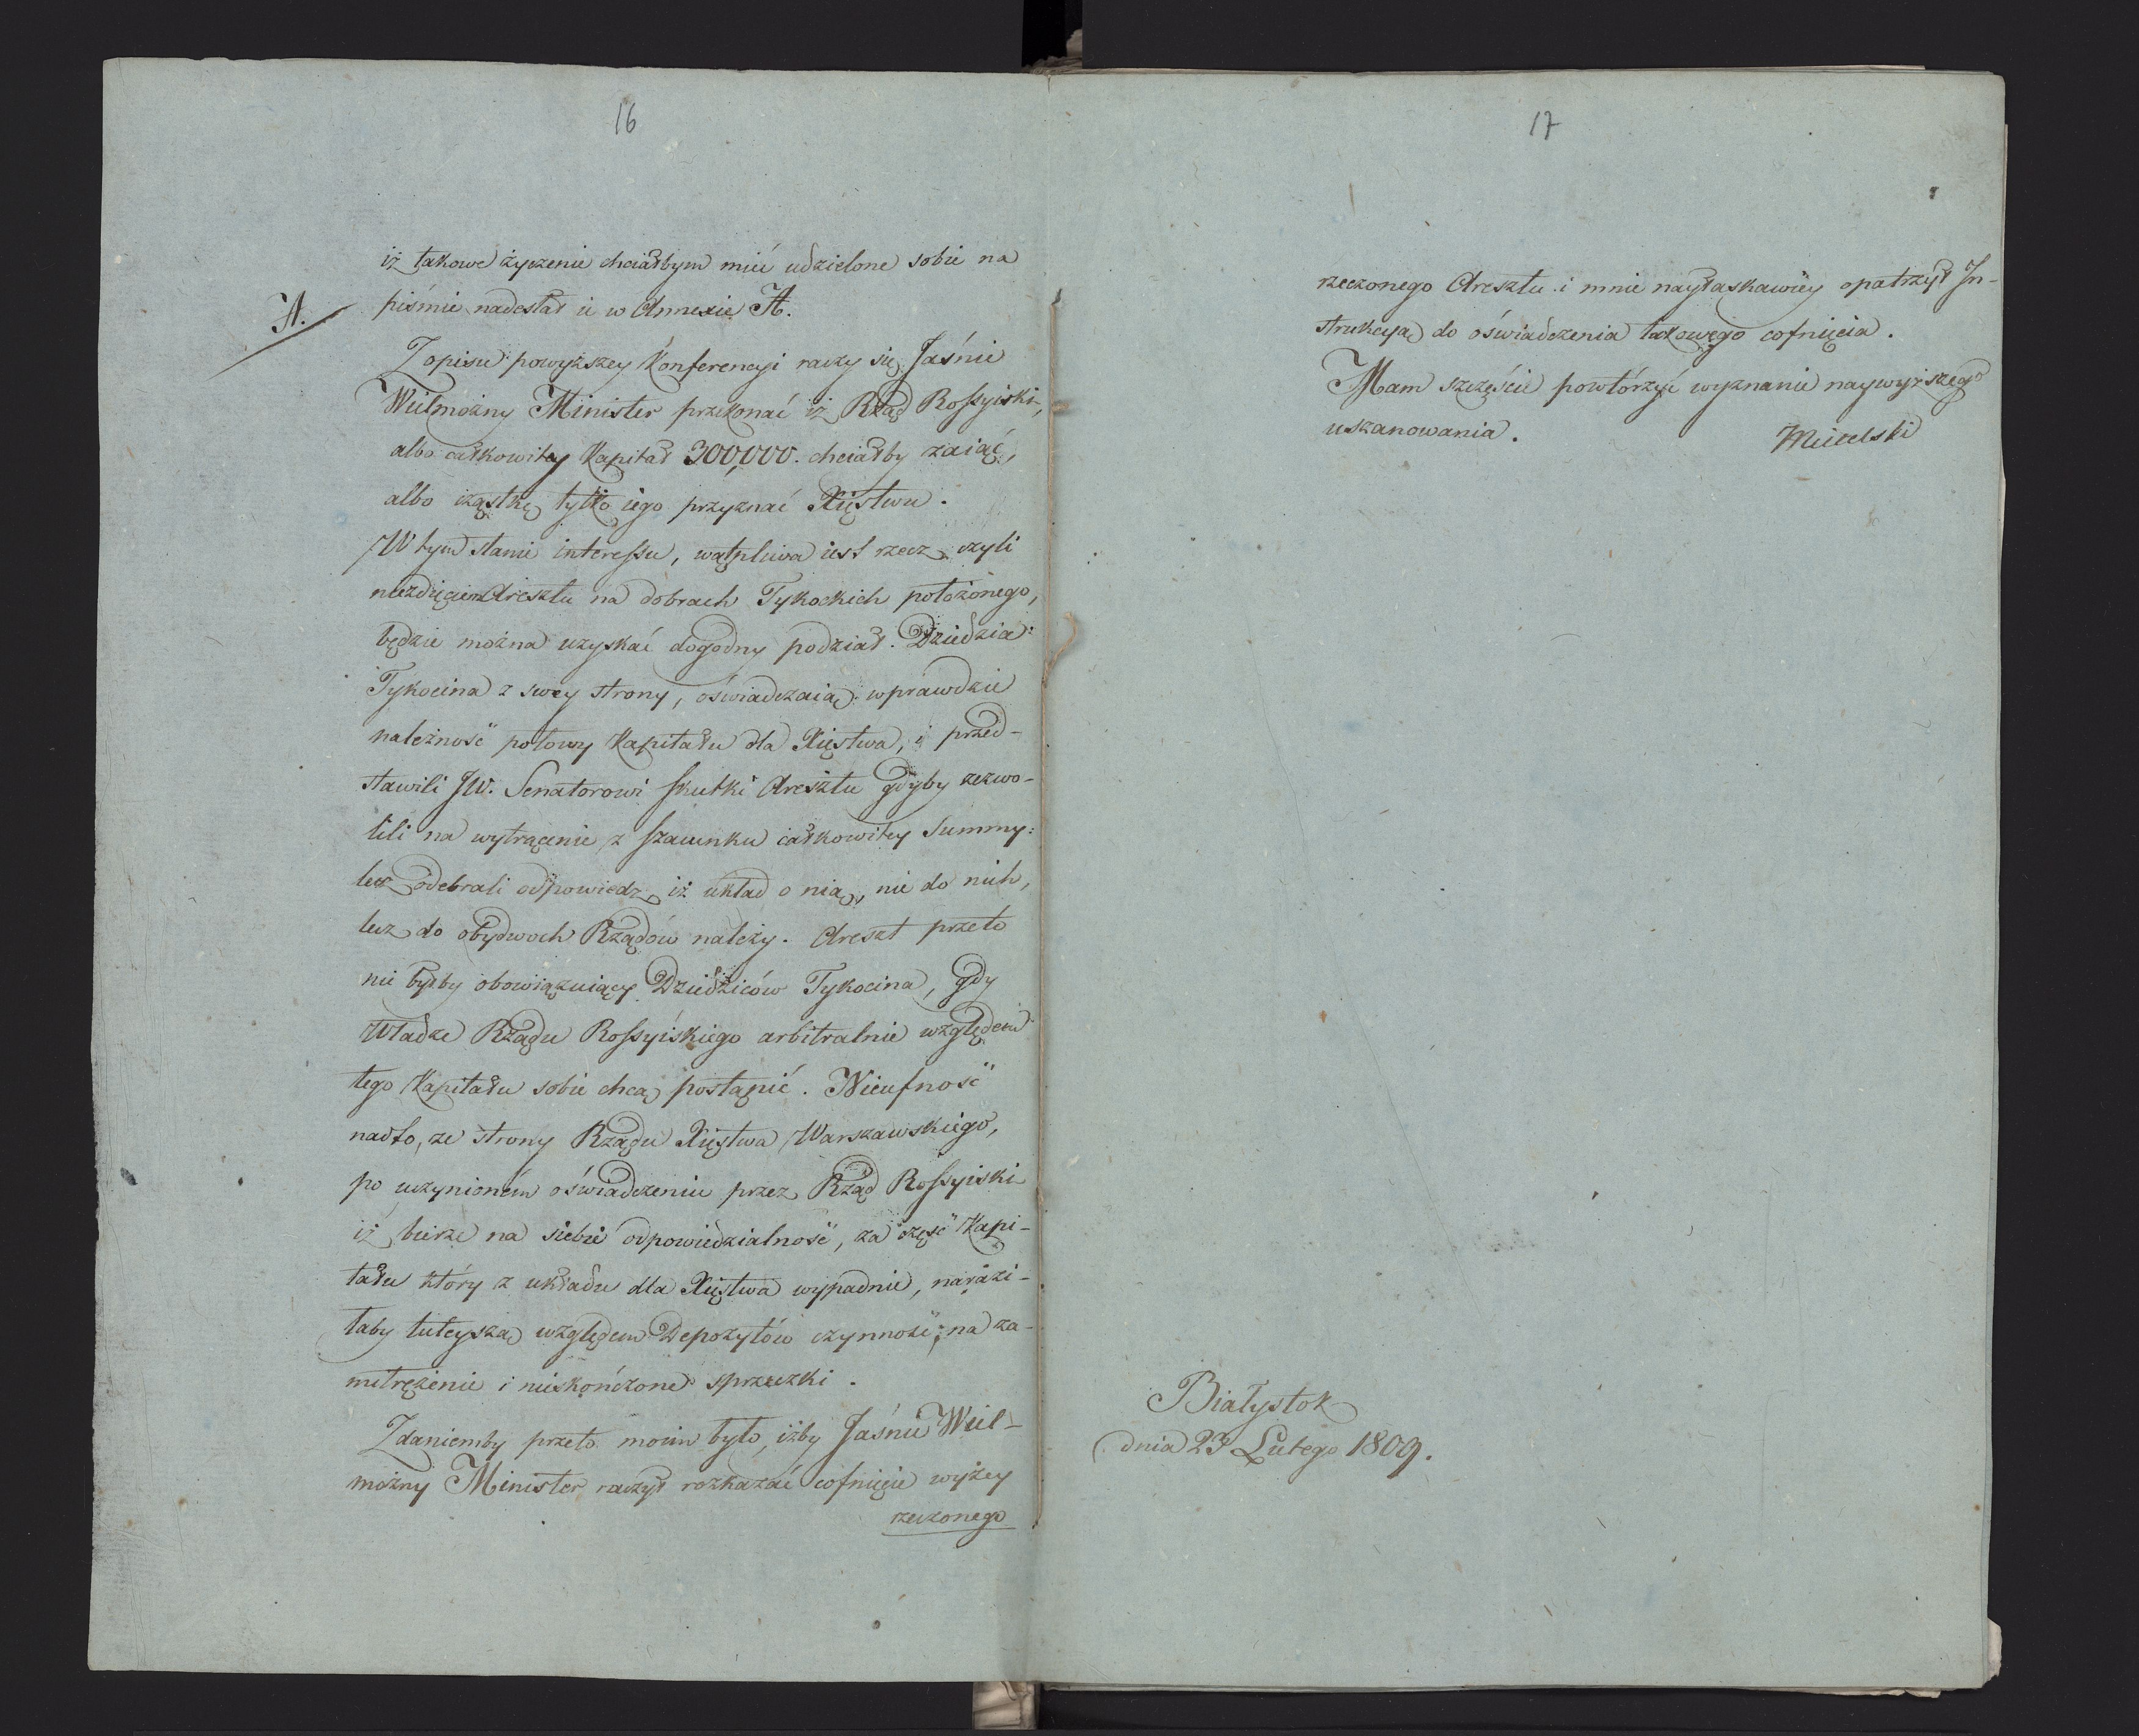 16
iż takowe życzenie chciałbym mieć udzielone sobie na
A.
piśmie nadesłał ie w Annexie A.
Z opisu powyższey Konferencyi raczy się Jaśnie
Wielmożny Minister przekonać iż Rząd Rossyiski,
albo całkowity Kapitał 300,000. chciałby zaiąć,
albo cząstkę tylko iego przyznać Xięstwu.
W tym stanie interessu, wątpliwa iest rzecz czyli
niezdięciem Aresztu na dobrach Tykockich położonego,
będzie można uzyskać dogodny podział. Dziedzice
Tykocina z swey strony, oświadczaią wprawdzie
należność połowy Kapitału dla Xięstwa, i przed-
stawili JW. Senatorowi skutki Aresztu gdyby zezwo-
lili na wytrącenie z szacunku całkowitey Summy:
lecz odebrali odpowiedz iż układ o nią, nie do nich,
lecz do obydwoch Rządów należy. Areszt przeto
nie byłby obowiązuiący Dziedziców Tykocina, gdy
Władze Rządu Rossyiskiego arbitralnie względem
tego Kapitału sobie chcą postąpić. Nieufność
nadto, ze strony Rządu Xięstwa Warszawskiego,
po uczynionem oświadczeniu przez Rząd Rossyiski
iż bierze na siebie odpowiedzialność, za część Kapi-
tału który z układu dla Xięstwa wypadnie, narazi-
łaby tuteyszą względem Depozytów czynność, na za-
mitrężenie i nieskończone sprzeczki.
Zdaniemby przeto moim było, iżby Jaśnie Wiel-
możny Minister raczył rozkazać cofnięcie wyżey
rzeczonego
17
rzeczonego Aresztu i mnie nayłaskawiey opatrzył In-
strukcyą do oświadczenia takowego cofnięcia.
Mam szczęście powtórzyć wyznanie naywyższego
uszanowania.
Białystok
dnia 23 Lutego 1809.